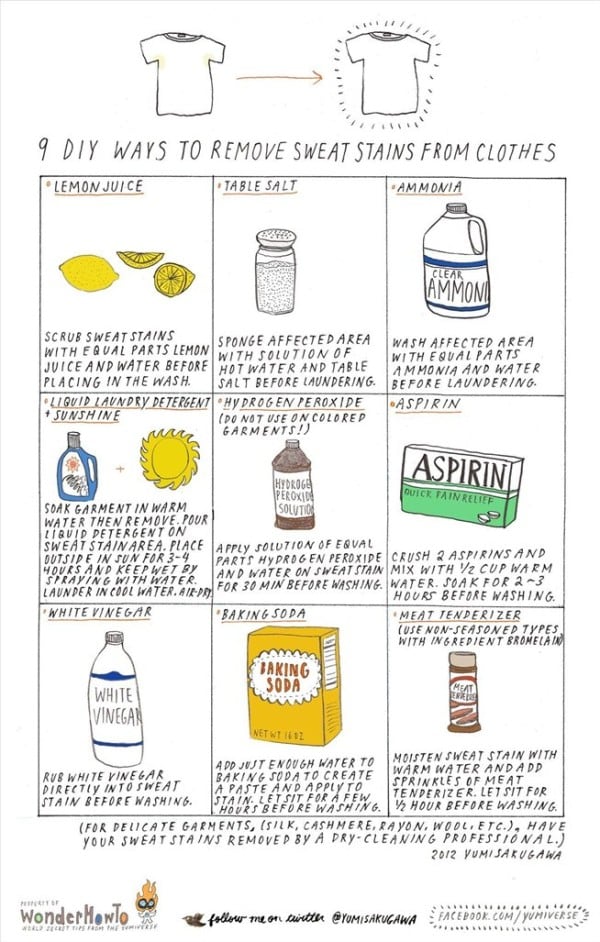 9 DIY WAYS TO REMOVE SWEAT STAINS FROM CLOTHES
LEMON JUICE
SCRUB SWEAT STAINS
WITH EQUAL PARTS LEMON
JUICE AND WATER BEFORE
PLACING IN THE WASH.
TABLE SALT
SPONGE AFFECTED AREA
WITH SOLUTION OF
HOT WATER AND TABLE
SALT BEFORE LAUNDERING.
AMMONIA
CLEAR
AMMONI
WASH AFFECTED AREA
WITH EQUAL PARTS
AMMONIA AND WATER
BEFORE LAUNDERING.
LIQUID LAUNDRY DETERGENT
+ SUNSHINE
+
SOAK GARMENT IN WARM
WATER THEN REMOVE. POUR
LIQUID DETERGENT ON
SWEAT STAIN AREA. PLACE
OUTSIDE IN SUN FOR 3-4
HOURS AND KEEP WET BY
SPRAYING WITH WATER.
LAUNDER IN COOL WATER. AIR-DRY.
HYDROGEN PEROXIDE
(DO NOT USE ON COLORED
GARMENTS!)
HYDROGE
PEROXID
SOLUTIO
APPLY SOLUTION OF EQUAL
PARTS HYDROGEN PEROXIDE
AND WATER ON SWEAT STAIN
FOR 30 MIN BEFORE WASHING.
ASPIRIN
ASPIRIN
QUICK PAIN RELIEF
CRUSH 2 ASPIRINS AND
MIX WITH 1/2 CUP WARM
WATER. SOAK FOR 2~3
HOURS BEFORE WASHING.
WHITE VINEGAR
WHITE
VINEGAR
RUB WHITE VINEGAR
DIRECTLY INTO SWEAT
STAIN BEFORE WASHING.
BAKING SODA
BAKING
SODA
NET WT 16 OZ
ADD JUST ENOUGH WATER TO
BAKING SODA TO CREATE
A PASTE AND APPLY TO
STAIN. LET SIT FOR A FEW
HOURS BEFORE WASHING.
MEAT TENDERIZER
(USE NON-SEASONED TYPES
WITH INGREDIENT BROMELAIN)
MEAT
MOISTEN SWEAT STAIN WITH
WARM WATER AND ADD
SPRINKLES OF MEAT
TENDERIZER. LET SIT FOR
1/2 HOUR BEFORE WASHING.
(FOR DELICATE GARMENTS, (SILK, CASHMERE, RAYON, WOOL, ETC.), HAVE
YOUR SWEAT STAINS REMOVED BY A DRY-CLEANING PROFESSIONAL.)
2012 YUMI SAKUGAWA
PROPERTY OF
WonderHowTo
WORLD SECRET TIPS FROM THE YUMIVERSE
follow me on twitter @YUMISAKUGAWA
FACEBOOK.COM/YUMIVERSE